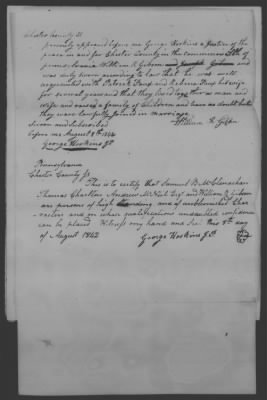 Chester County SS
personly appeared before me George Hoskins a Justice of the
peace in and for Chester County in the common State of
pennsylvania William R Gibson and Joseph Gibson and
was duly sworn according to law that he was well
acquainted with Patrick and Rebecca his wife
for several years and that they lived together as man and
wife and raised a family of Children and have no doubt but
they were lawfully joined in marriage
Sworn and Subscribed
before me August 8th 1842
George Hoskins J.P.
William R Gibson
Pennsylvania
Chester County SS
This is to certify that Samuel B McClenachan
Thomas Charlton Andrew McNiel Esqr and William R Gibson
are persons of high standing and of unblemished Cha
racters and on whose qualifications undoubted confidence
can be placed Witness my hand and Seal this 8th day
of August 1842
George Hoskins J.P.